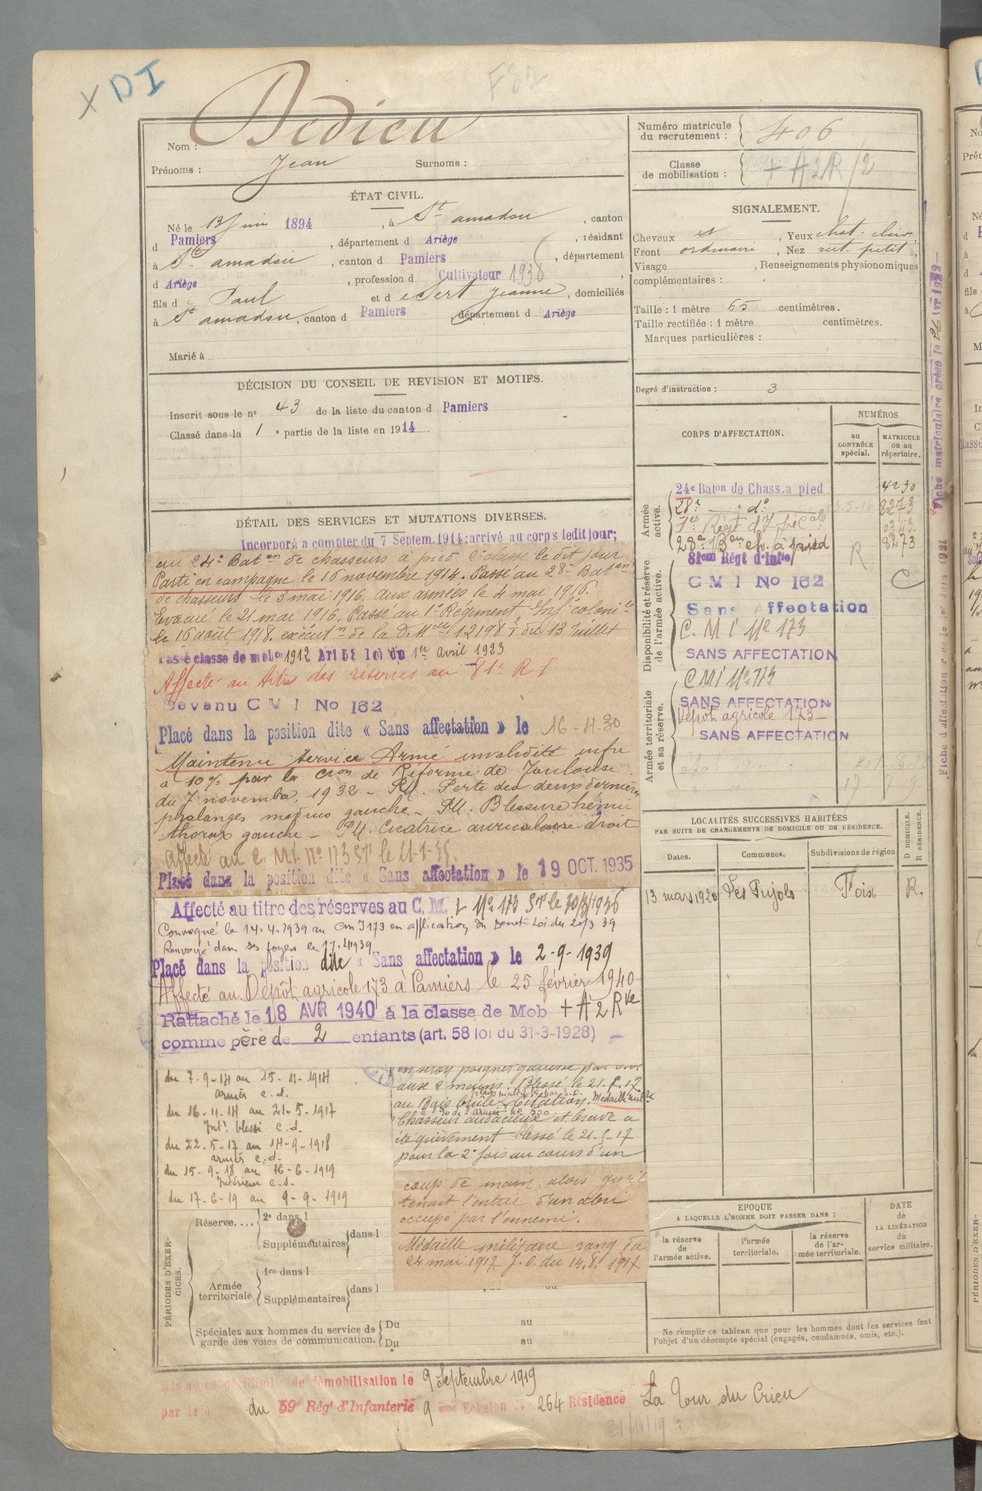 X DI
F82
Nom : Dedieu
Prénoms : Jean Surnoms :
ÉTAT CIVIL.
Né le 13 Juin 1894, à St amadou, canton
d Pamiers, département d Ariège, résidant
à St amadou, canton d Pamiers, département
d Ariège, profession d Cultivateur 1936
fils d Paul et d Jeanne, domiciliés
à St amadou, canton d Pamiers département d Ariège
Marié à
DÉCISION DU CONSEIL DE REVISION ET MOTIFS.
Inscrit sous le n° 43 de la liste du canton d Pamiers
Classé dans la 1 e partie de la liste en 1914.
DÉTAIL DES SERVICES ET MUTATIONS DIVERSES.
Incorporé a compter du 7 Septem. 1914: arrivé au corps ledit jour;
au 24e Baton de chasseurs à pied 2e classe le dit jour
Parti en campagne le 16 novembre 1914. Passé au 28e Baton
de chasseurs le 3 mai 1916. aux armées le 4 mai 1916.
Evacué le 21 mai 1916. Passé au 1er Régiment Inf. colonie
le 16 août 1918. du 13 Juillet
Passé classe de mob on 1912 Art 58 loi du 1er Avril 1923
Affecté au titre des réserves au 81e R I
Devenu C M I No 162
Placé dans la position dite « Sans affectation » le 16-11-30
Maintenu Service Armé invalidité infre
à 10% par la Cion de Réforme de Toulouse
du 7 novembre 1932 - P.M. Perte des deux dernières
phalanges médius gauche - P.M. Blessure hémi
thorax gauche - P.M. Cicatrice auriculaire droit
affecté au C. M. I. No 173 le 21-1-35.
Placé dans la position dite « Sans affectation » le 19 OCT. 1935
Affecté au titre des réserves au C. M. I No 173 le
Convoqué le 14.4.1939 au CM I 173 en application du Décret-Loi du 20/3 39
Renvoyé dans ses foyers le 17.4.1939
Placé dans la position dite « Sans affectation » le 2-9-1939
Affecté au Dépôt agricole 173 à Pamiers le 25 février 1940
Rattaché le 18 AVR 1940 à la classe de Mob + A 2 Rve
comme père de 2 enfants (art. 58 loi du 31-3-1928)
du 7-9-14 au 15-11-1914
armées c.d.
du 16-11-14 au 21-5-1917
Int. blessé c.d.
du 22-5-17 au 14-9-1918
armées c.d.
du 15-9-18 au 16-6-1919
Intérieur c.d.
du 17-6-19 au 9-9-1919
poignet gauche par
aux 2 mains. Blessé le 21.5.17
Citation. Médaille milre
Chasseur audacieux et brave a
été grièvement blessé le 21-5-17
pour la 2e fois au cours d'un
coup de main, alors qu'il
tenait l'entrée d'un abri
occupé par l'ennemi.
Médaille militaire rang du
24 mai 1917 J.O. du 14.8.1917
PÉRIODES D'EXERCICES.
Réserve.... 2e dans l
Supplémentaires dans l
Armée territoriale 1re dans l
Supplémentaires dans l
Spéciales aux hommes du service de Du au
garde des voies de communication. Du au
de démobilisation le 9 Septembre 1919
par du 59e Régt d'Infanterie 9 eme Echelon No 264 Résidence La Tour du Crieu
Numéro matricule
du recrutement : 406
Classe
de mobilisation : + A2R/2
SIGNALEMENT.
Cheveux, Yeux
Front ordinaire, Nez rect. petit
Visage, Renseignements physionomiques
complémentaires :
Taille : 1 mètre 65 centimètres.
Taille rectifiée : 1 mètre centimètres.
Marques particulières :
Degré d'instruction : 3
CORPS D'AFFECTATION.
NUMÉROS
au CONTRÔLE spécial.
MATRICULE ou au répertoire.
Armée active.
24e Baton de Chass.a pied 4230
28e do 8273
1er Régt d'Inf Cale
28e Bon ch. à pied 8273
Disponibilité et réserve de l'armée active.
81eme Régt d'Infie R
C M I No 162 C
Sans Affectation
C. M I No 173
SANS AFFECTATION
Armée territoriale et sa réserve.
C M I No 173
SANS AFFECTATION
Dépôt agricole 173
SANS AFFECTATION
LOCALITÉS SUCCESSIVES HABITÉES
PAR SUITE DE CHANGEMENTS DE DOMICILE OU DE RÉSIDENCE.
Dates. Communes. Subdivisions de région D DOMICILE. R RÉSIDENCE.
13 mars 1920 Les Pujols Foix R.
EPOQUE
A LAQUELLE L'HOMME DOIT PASSER DANS :
la réserve de l'armée active.
l'armée territoriale.
la réserve de l'armée territoriale.
DATE de LA LIBÉRATION du service militaire.
Ne remplir ce tableau que pour les hommes dont les services font
l'objet d'un décompte spécial (engagés, condamnés, omis, etc.).
Fiche matriculaire créée le 26 Avr 1939